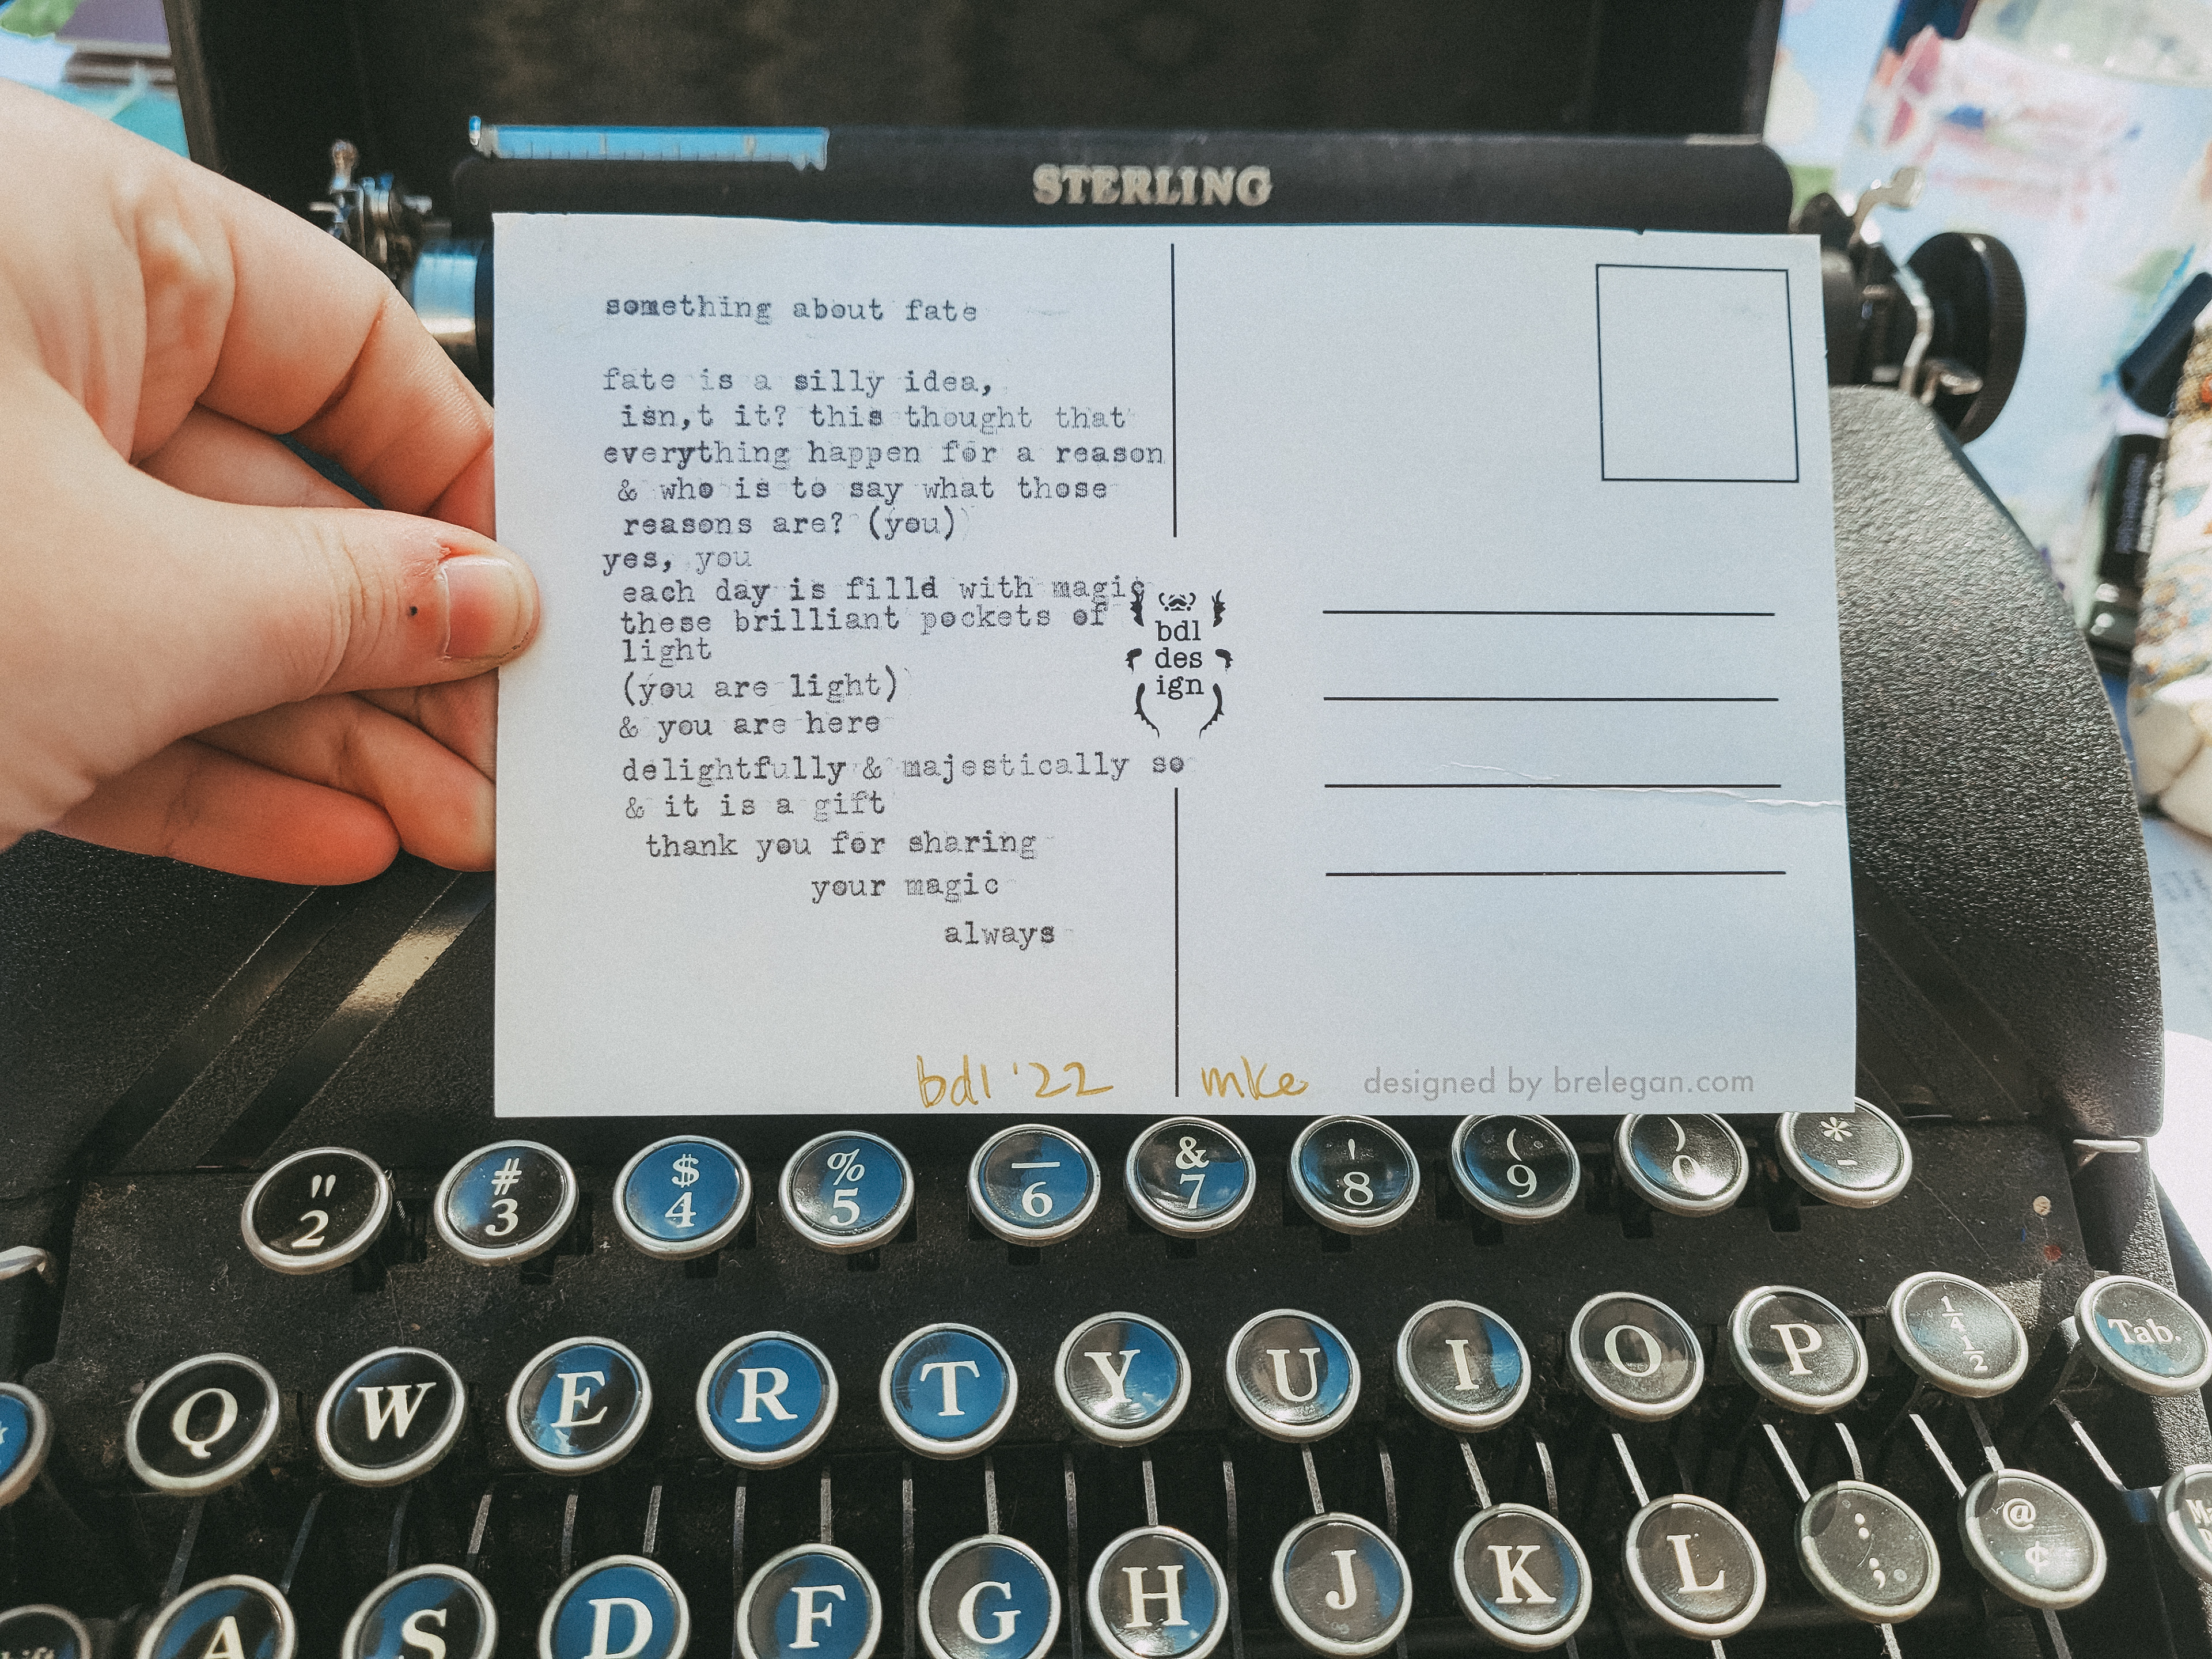 STERLING
something about fate
fate is a silly idea,
isn,t it? this thought that
everything happen for a reason
& who is to say what those
reasons are? (you)
yes, you
each day is filld with magic
these brilliant pockets of
light
(you are light)
& you are here
delightfully & majestically so
& it is a gift
thank you for sharing
your magic
always
bdl
des
ign
bdl '22 mke
designed by brelegan.com
" # $ % _ & ' ( ) *
2 3 4 5 6 7 8 9 0 -
Q W E R T Y U I O P 1/4 1/2 Tab.
A S D F G H J K L : ; @ ¢